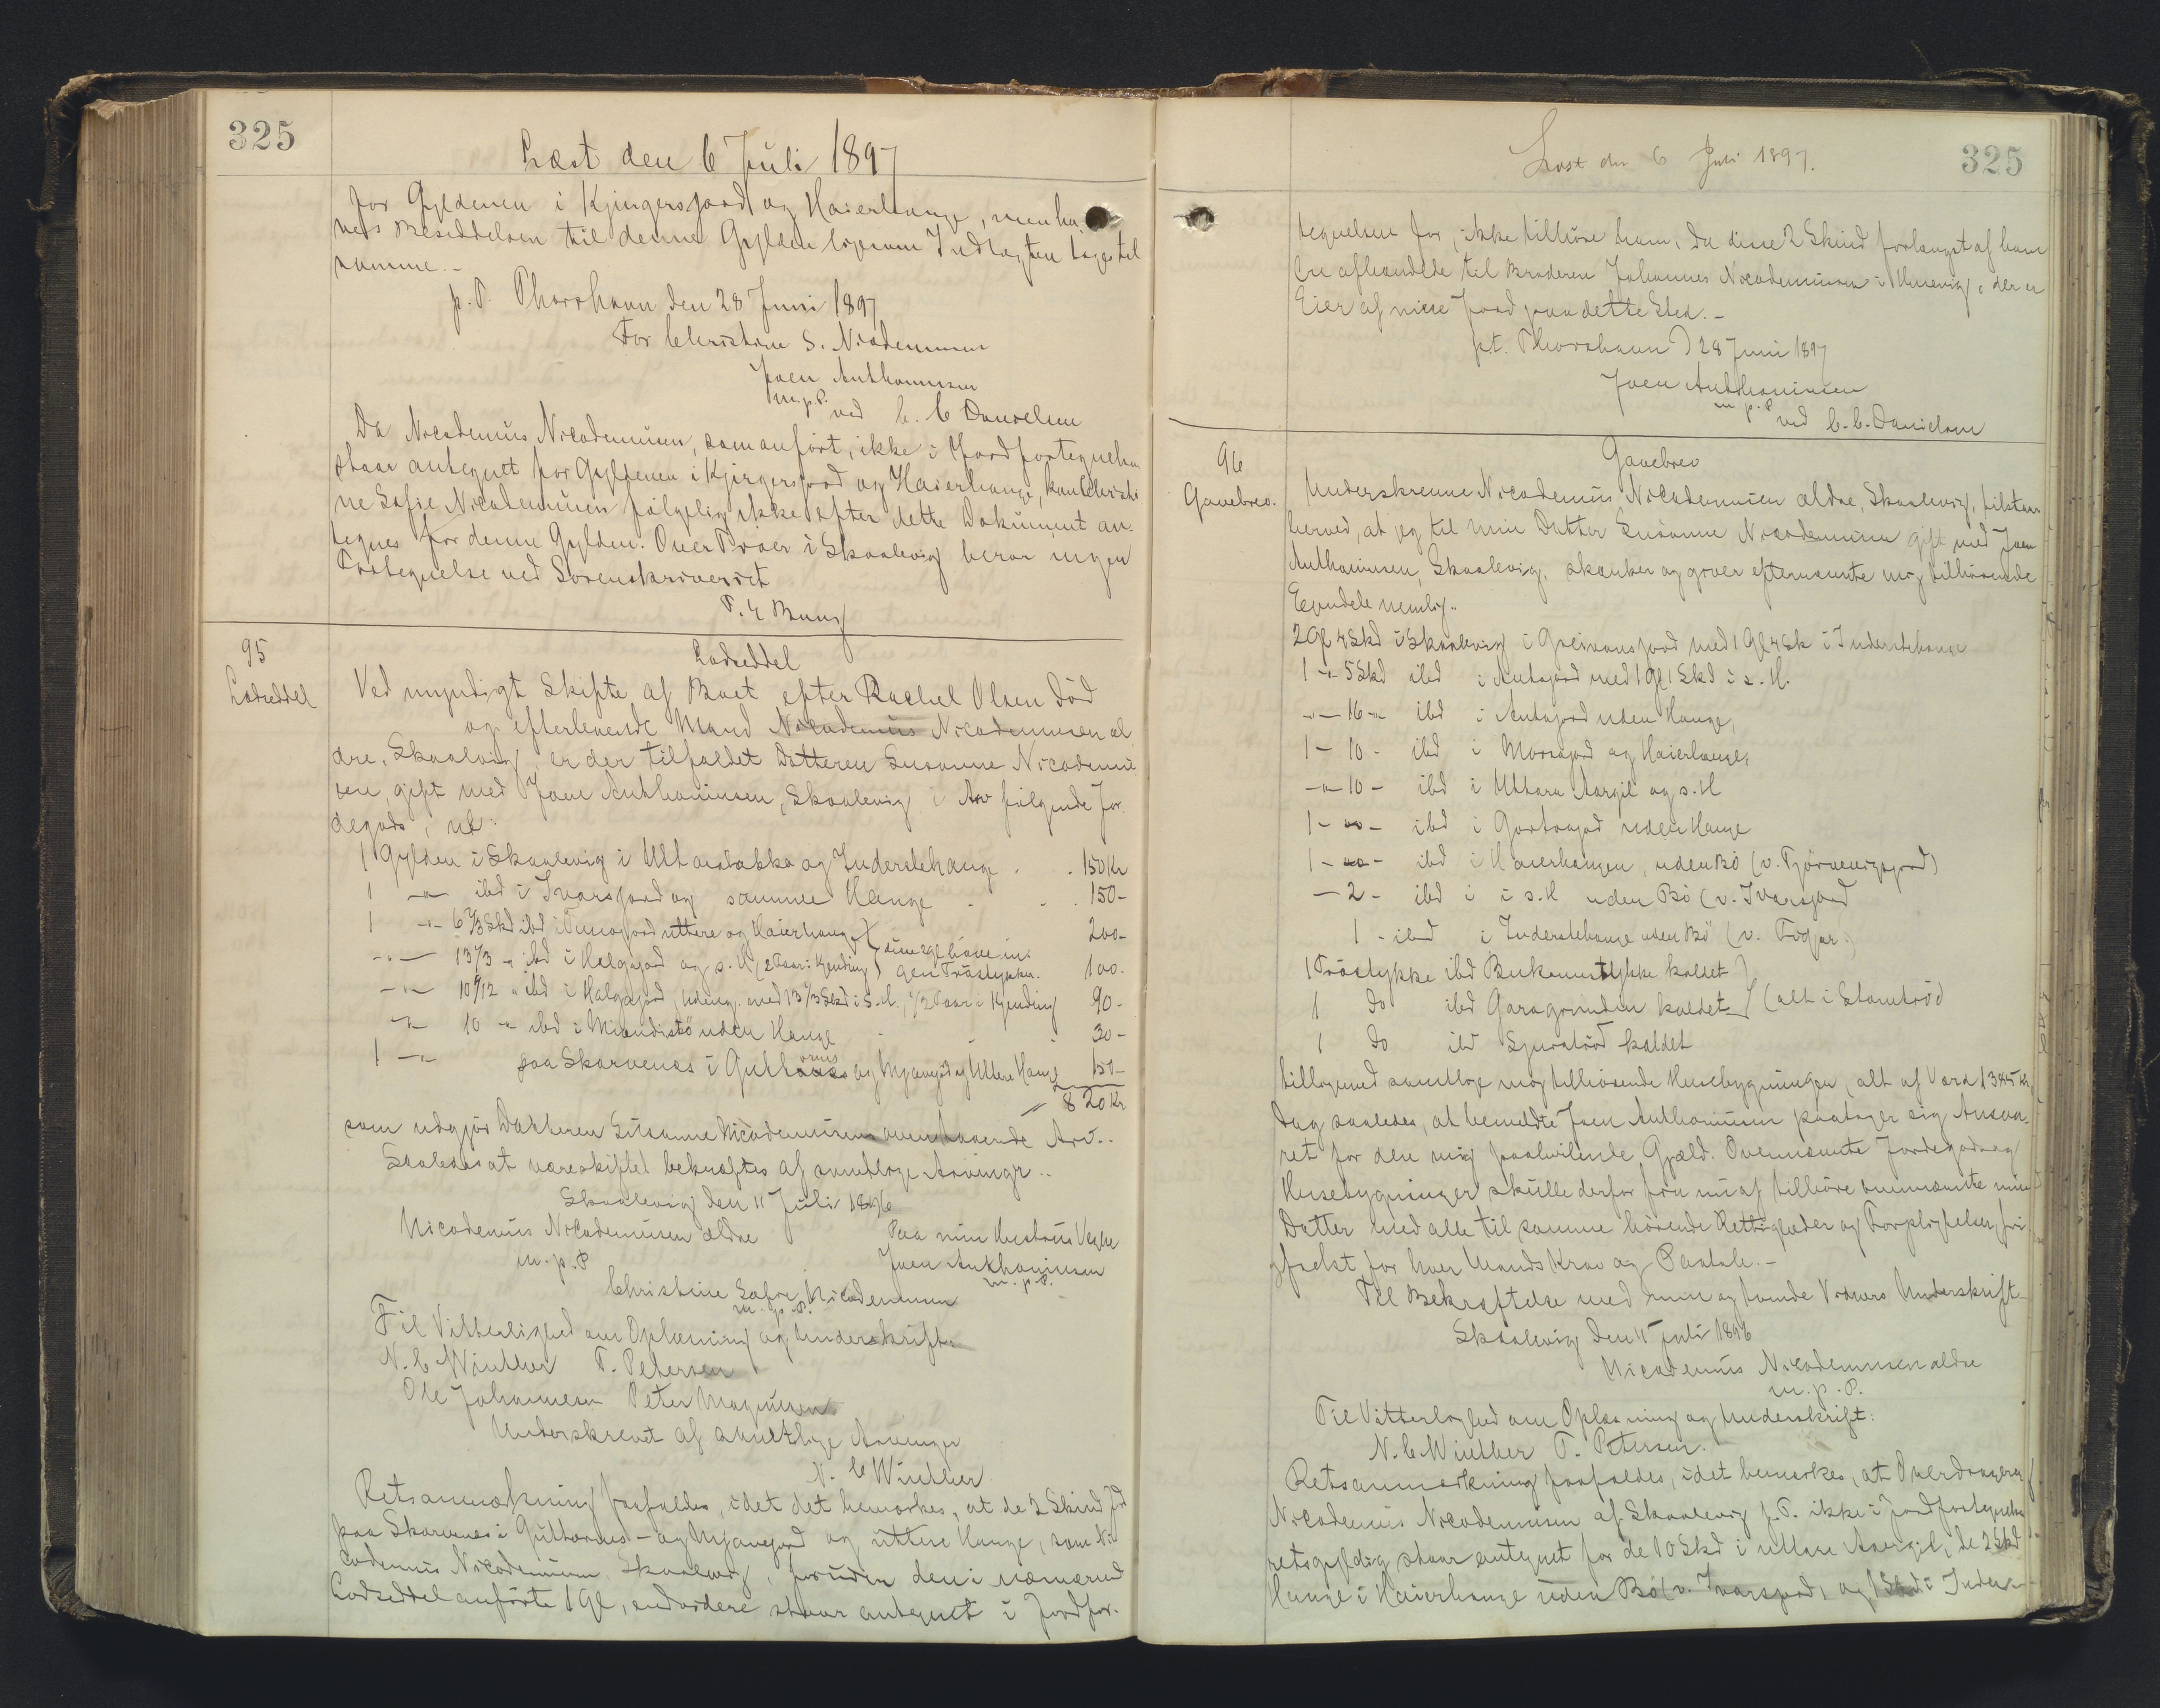 325
Læst den 6 Juli 1897
for Gyldenen i Kjirgersjord og Haierhauge, men ha
ves Besiddelsen til denne Gylden ligesom Indtægten tages til
samme.-
p.T. Thorshavn den 28 Juni 1897
For Christine S. Nicodemusen
Joen Anthoniusen
m.p.P.
ved C. C Danielsen
Da Nicodemus Nicodemusen, som anført, ikke i Jordfortegnelsen
staar antegnet for Gyldenen i Kjirgersjord og Haierhauge, kan Christi
ne Sofie Nicodemusen følgelig ikke efter dette Dokument an-
tegnes for denne Gylden. Over Tröer i Skaalevig beror ingen
Fortegnelse ved Sorenskriveriet
T. E Bung
95
Lodseddel
Lodseddel
Ved myndigt Skifte af Boet efter Rachel Olsen död
og efterlevende Mand Nicodemus Nicodemusen æl
dre, Skaalevig er der tilfaldet Datteren Susanne Nicodemu
sen, gift med Joen Anthoniusen, Skaalevig i Arv følgende Jor
degods, nl:
1 Gylden i Skaalevig i Ultarstakka og Inderstehauge . . 150 Kr
1 -"- ibd i Ivarsjord og samme Hauge . . 150-
1 -"- 6 2/3 Skd ibd i Tunojord uttere og Haierhauge 200-
-"- 13 1/3 -"- ibd i Helgajord og s. H (2 Faar i Kjending) sine 2 gl havein: gen Tröstykker. 100.
-"- 10 9/12 " ibd i Halgajord, udeng. med 13 1/3 Skd i s.H., 1/2 Faar i Kjending 90-
-"- 10 -"- ibd i Miandistö uden Hauge . . 30-
1 -"- paa Skarvenæs i Gutthornes og Mjavejord og Uttere Hauge 150-
820 Kr
som udgjör Datteren Susanne Nicodemusens ovenstaaende Arv..
Skaledes at væreskiftet bekræftes af samtlige Arvinger ..
Skaalevig den 11 Juli 1896
Nicodemus Nicodemusen ældre
m.p.P
Paa min Hustrus Vegne
Joen Anthoniusen
m.p.P.
Christine Safie Nicodemusen
m.p.P.
Til Vitterlighed om Oplæsning og Underskrift.
N. C Winther T. Petersen
Ole Johannesen Peter Magnusen
Underskrevet af samtlige Arvinger
N. C Winther
Retsanmærkning frafaldes, idet det bemærkes, at de 2 Skind Jord
paa Skarvenes i Gutthornes - og Mjavejord og uttere Hauge, som Ni
codemus Nicodemusen, Skaalevig, foruden den i nærværend
Lodseddel anførte 1 Gl, endvidere staar antegnet i Jordfor-
Læst den 6 Juli 1897.
325
tegnelsen for, ikke tilhöre ham, da disse 2 Skind forlængst af ham
ere afhændede til Broderen Johannes Nicodemusen i Husevig, der er
Eier af mere Jord paa dette Sted.-
pt. Thorshavn D 28 Juni 1897
Joen Anthoniusen
m p.P
ved C. C. Danielsen
96
Gavebrev.
Gavebrev
Underskrevne Nicodemus Nicodemusen ældre, Skaalevig, tilstaar
herved, at jeg til min Datter Susanne Nicodemusen gift med Joen
Anthoniusen, Skaalevig, skænker og giver efternævnte mig tilhörende
Ejendele nemlig..
2 Gl 4 Skd i Skaalevig i Greivansjord med 1 Gl 4 Sk i Inderstehauge
1 -"- 5 Skd ibd i Antajord med 1 Gl 1 Skd i s. H.
-"- 16 -"- ibd i Antajord uden Hauge,
1 - 10 - ibd i Morsajord og Haierhauge,
-"- 10 - ibd i Uttara Aargil og s. H
1 - "- ibd i Gortsajord uden Hauge
1 - "- ibd i Haierhaugen, uden Bö (v. Tjörnevigsjord)
- 2 - ibd i i s.H uden Bö (v. Ivarsjord
1 - ibd i Inderstehauge uden Bö (v. Fögjar.)
1 Tröstykke ibd Bukanustykke kaldet
1 do ibd Garagrunden kaldet (alt i Stamtröd
1 do ibd Spuratröd kaldet
tilligemed samtlige mig tilhörende Husebygninger, alt af Værd 1385 Kr
Dog saaledes, at bemeldte Joen Anthoniusen paatager sig Ansva-
ret for den mig paahvilende Gjæld. Ovennævnte Jordegods og
Husebygninger skulle derfor fra nu af tilhöre ovennævnte min
Datter med alle til samme hörende Rettigheder og Forpligtelser, fri
gjældt for hver Mands Krav og Paatale.-
Til Bekræftelse med min og tvende Vidners Underskrift.
Skaalevig den 11 Juli 1896
Nicodemus Nicodemusen ældre
m.p.P.
Til Vitterlighed om Oplæsning og Underskrift:
N. C Winther T. Petersen.
Retsanmærkning frafaldes, idet bemærkes, at Overdrageren
Nicodemus Nicodemusen af Skaalevig p.T. ikke i Jordfortegnelsen
retsgyldig staar antegnet for de 10 Skd i uttara Aargil, de 2 Skd
Hauge i Haierhauge uden Bö (v. Ivarsjord, og 1 Skd i Inders-